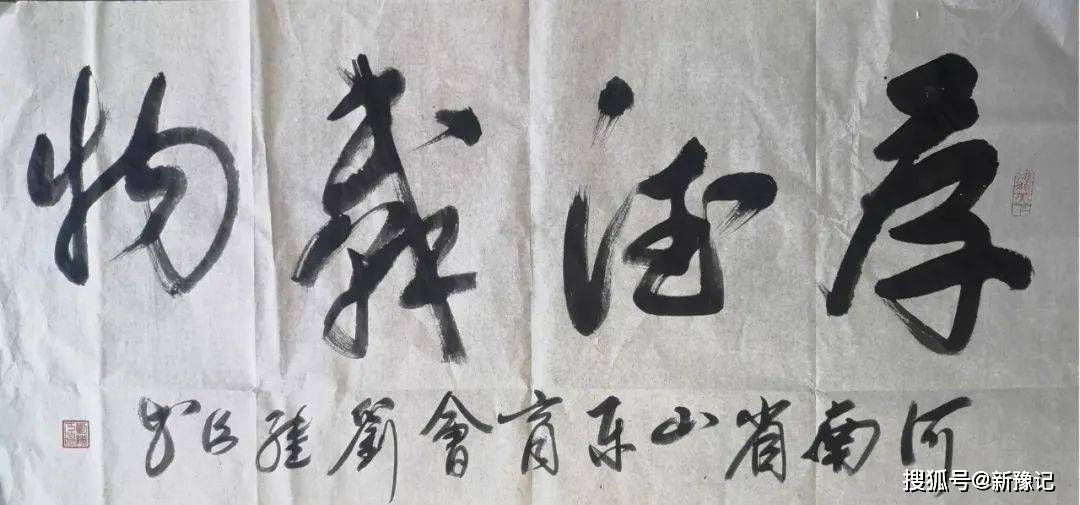 厚德载物
河南省山东商會劉
搜狐号@新豫记